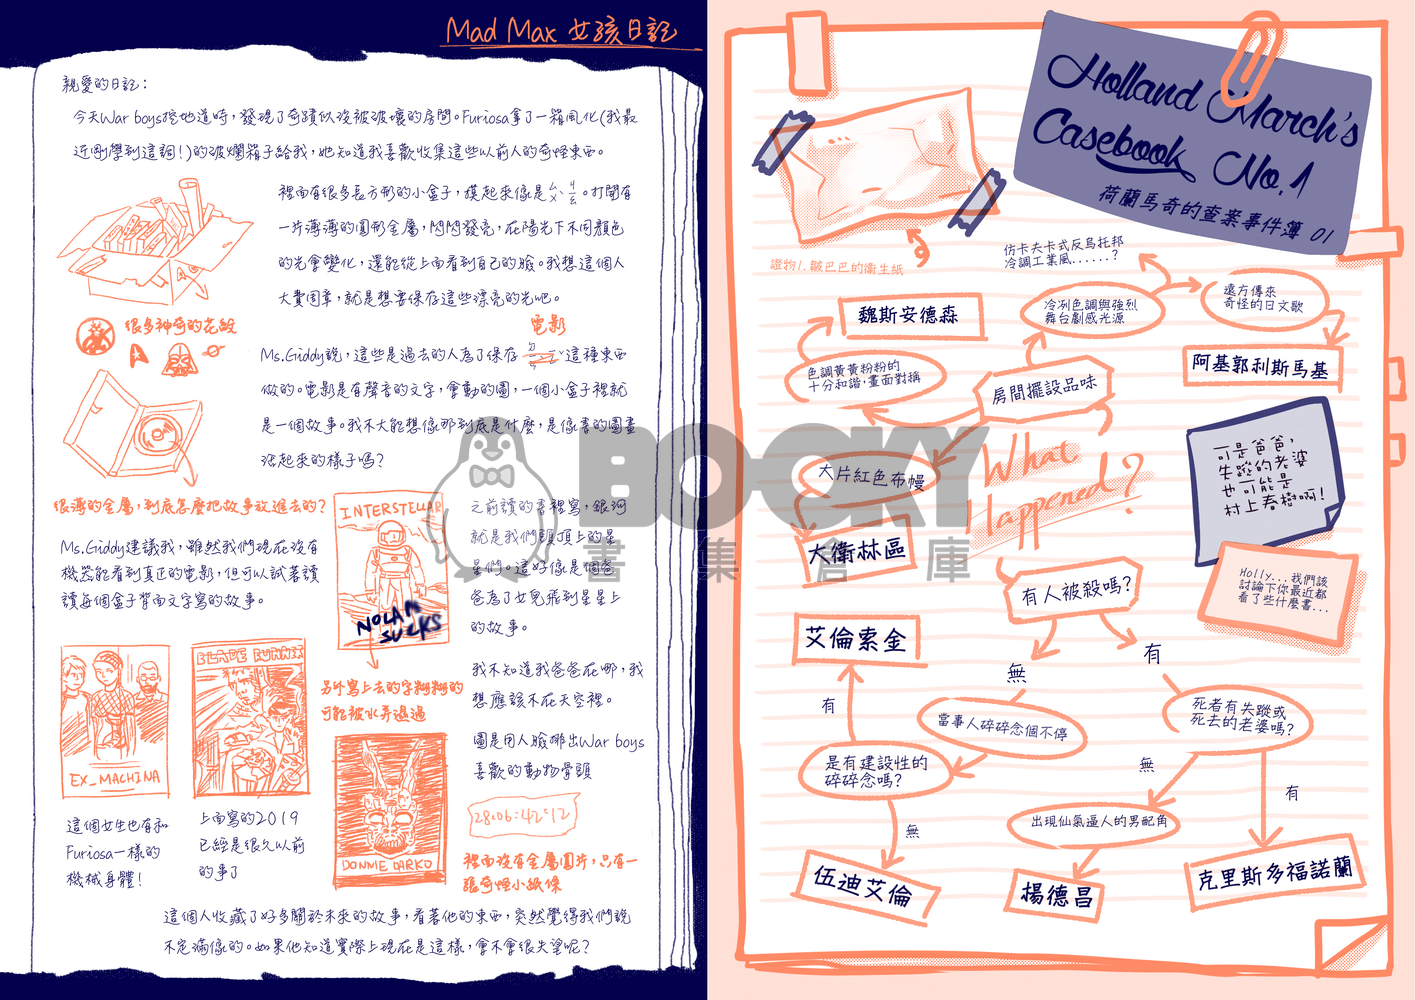 Mad Max 女孩日記
親愛的日記：
今天War boys挖地道時，發現了奇蹟似沒被破壞的房間。Furiosa拿了一箱風化(我最
近剛學到這詞!)的破爛箱子給我，她知道我喜歡收集這些以前人的奇怪東西。
裡面有很多長方形的小盒子，摸起來像是ㄙㄨˋㄐㄧㄠ。打開有
一片薄薄的圓形金屬，閃閃發亮，在陽光下不同顏色
的光會變化，還能從上面看到自己的臉。我想這個人
大費周章，就是想要保存這些漂亮的光吧。
很多神奇的花紋
電影
Ms.Giddy說，這些是過去的人為了保存 這種東西
做的。電影是有聲音的文字，會動的圖，一個小盒子裡就
是一個故事。我不大能想像那到底是什麼，是像書的圖畫
活起來的樣子嗎？
很薄的金屬，到底怎麼把故事放進去的？
Ms.Giddy建議我，雖然我們現在沒有
機器能看到真正的電影，但可以試著讀
讀每個盒子背面文字寫的故事。
INTERSTELLAR
NOLAN
SUCKS
之前讀的書裡寫，銀河
就是我們頭頂上的星
星們。這好像是個爸
爸為了女兒飛到星星上
的故事。
另外寫上去的字糊糊的
可能被水弄過過
我不知道我爸爸在哪，我
想應該不在天空裡。
EX_MACHINA
這個女生也有和
Furiosa一樣的
機械身體！
BLADE RUNNER
上面寫的2019
已經是很久以前
的事了
DONNIE DARKO
圖是用人臉挪出War boys
喜歡的動物骨頭
28:06:42:12
裡面沒有金屬圓片，只有一
張奇怪小紙條
這個人收藏了好多關於未來的故事，看著他的東西，突然覺得我們說
不定滿像的。如果他知道實際上現在是這樣，會不會很失望呢？
Holland March's
Casebook No.1
荷蘭馬奇的查案事件簿 01
證物1. 皺巴巴的衛生紙
仿卡夫卡式反烏托邦
冷調工業風......？
魏斯安德森
冷冽色調與強烈
舞台劇感光源
遠方傳來
奇怪的日文歌
阿基郭利斯馬基
色調黃黃粉粉的
十分和諧，畫面對稱
房間擺設品味
大片紅色布幔
大衛林區
What
Happened?
可是爸爸，
失蹤的老婆
也可能是
村上春樹啊！
Holly...我們該
討論下你最近都
看了些什麼書...
有人被殺嗎？
艾倫索金
無
有
有
當事人碎碎念個不停
死者有失蹤或
死去的老婆嗎？
是有建設性的
碎碎念嗎？
無
有
無
出現仙氣逼人的男配角
伍迪艾倫
楊德昌
克里斯多福諾蘭
BOOKY
書集倉庫